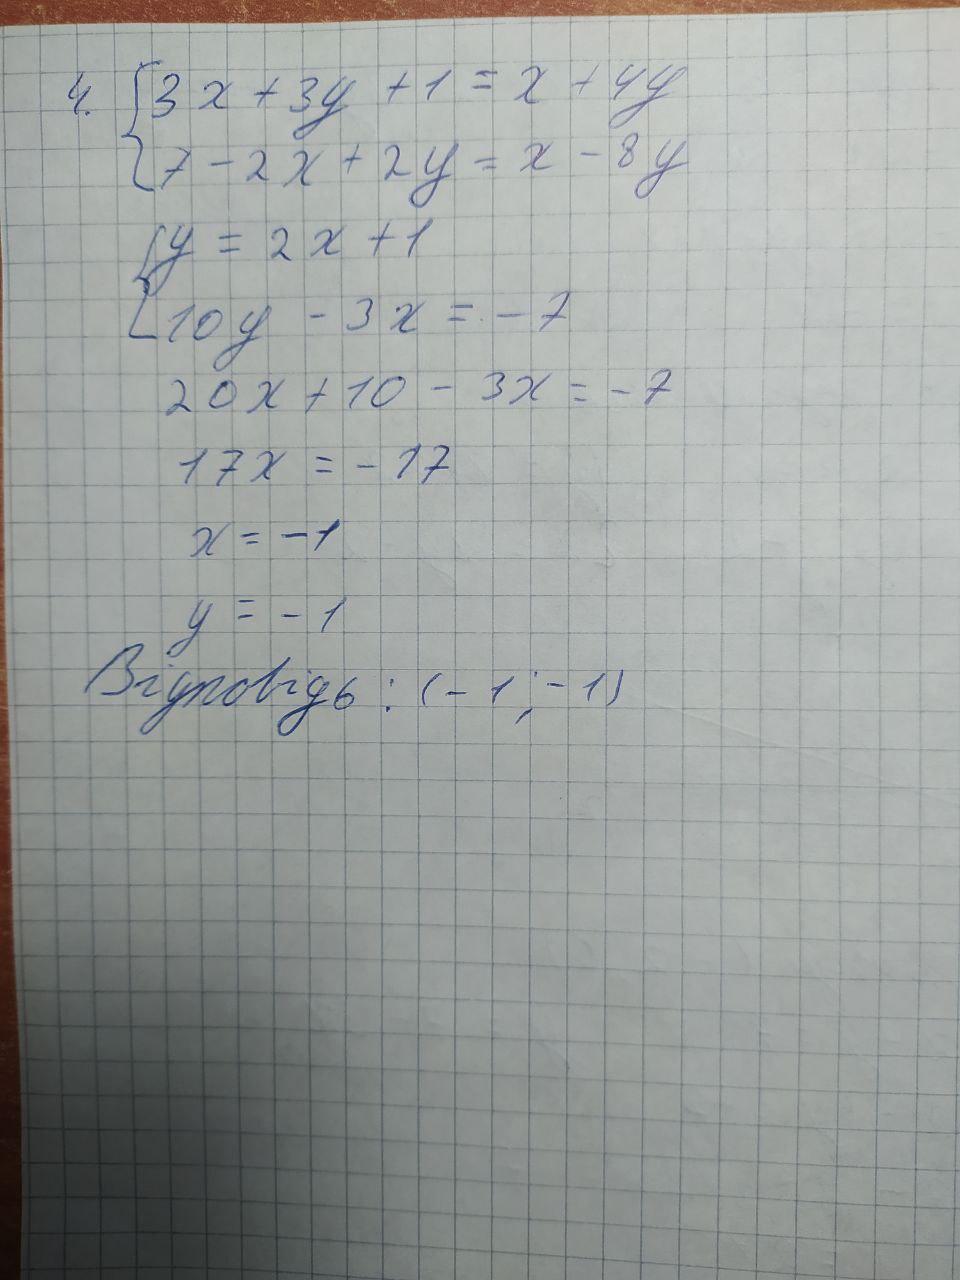 4. { 3x + 3y + 1 = x + 4y
7 - 2x + 2y = x - 8y
{ y = 2x + 1
10y - 3x = -7
20x + 10 - 3x = -7
17x = -17
x = -1
y = -1
Відповідь: (-1; -1)